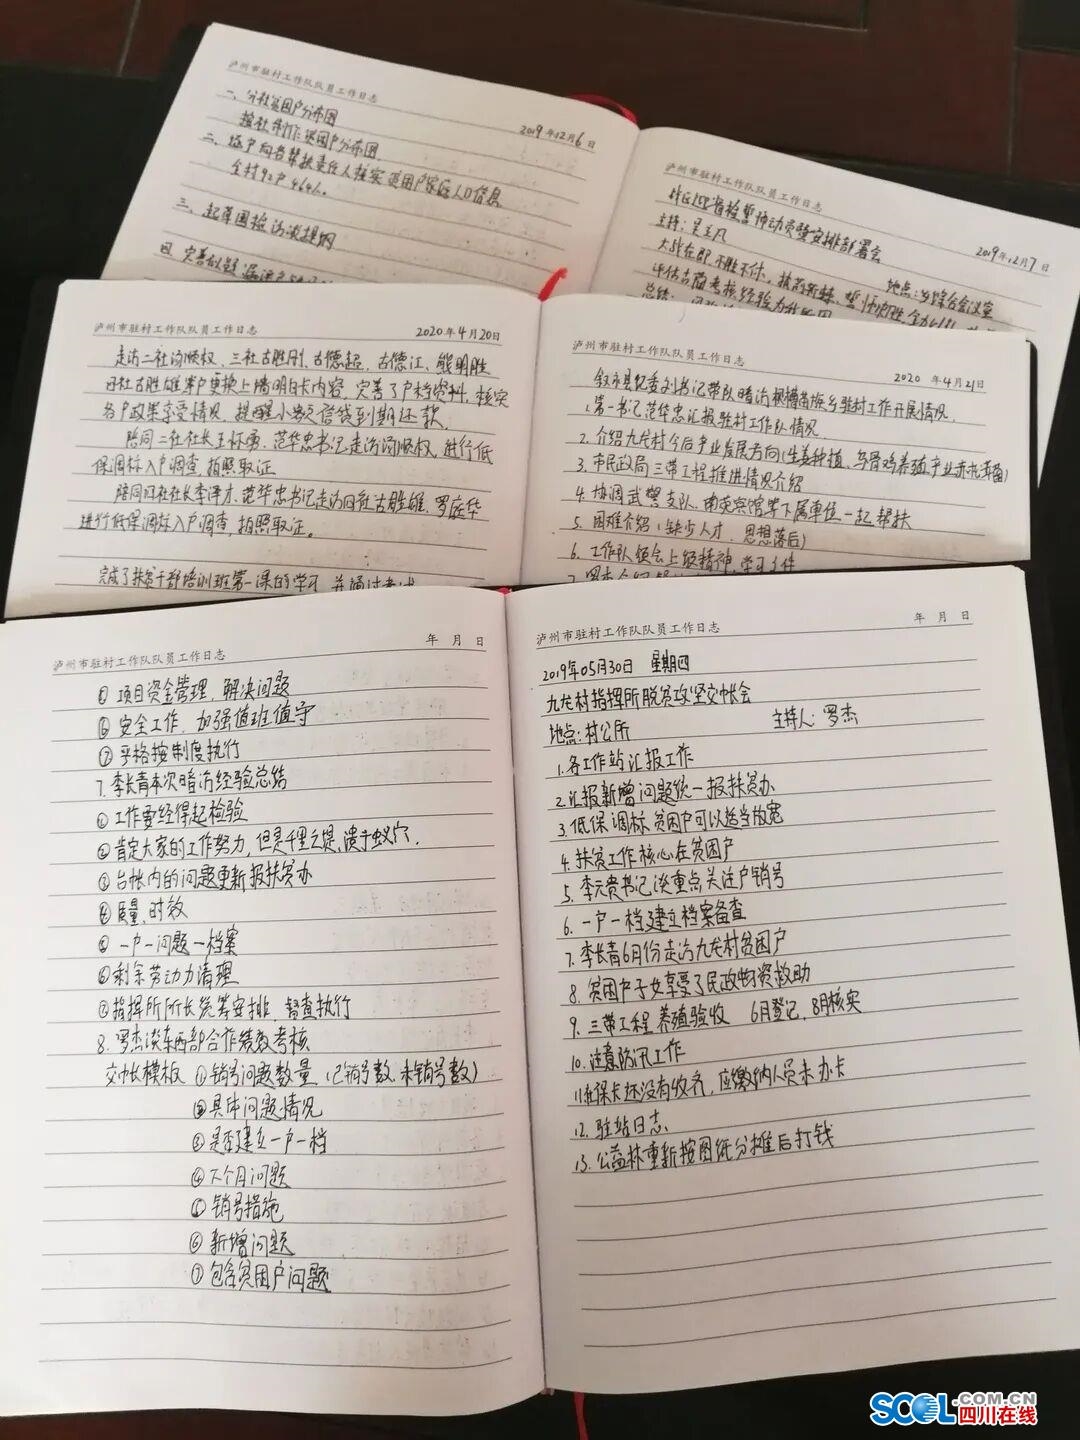 泸州市驻村工作队队员工作日志
2019年12月6日
一、分社贫困户分布图
按社制作贫困户分布图.
二、逐户向各帮扶责任人核实贫困户家庭人口信息
全村92户464人。
三、起草国检访谈提纲
四、完善
泸州市驻村工作队队员工作日志
2019年12月7日
迎省检暂冲动员暨安排部署会
主持:吴王凡
地点:乡综合会议室
大战在即不胜不休,披荆斩棘,誓
评估古蔺考核经验
总结:
泸州市驻村工作队队员工作日志
2020年4月20日
走访二社汤顺权、三社古胜刚、古德超、古德江、熊明胜
四社古胜雄等户更换上墙明白卡内容,完善了户档资料,核实
各户政策享受情况,提醒小额信贷到期还款.
陪同二社社长王标勇、范华忠书记走访汤顺权,进行低
保调标入户调查,拍照取证.
陪同四社社长李泽才、范华忠书记走访四社古胜雄、罗庭华
进行低保调标入户调查,拍照取证。
完成了扶贫干部培训班第一课的学习,并通过考试
泸州市驻村工作队队员工作日志
2020年4月21日
叙永县纪委刘书记带队暗访枧槽苗族乡驻村工作开展情况.
1.第一书记范华忠汇报驻村工作队情况
2.介绍九龙村今后产业发展方向(生姜种植、乌骨鸡养殖,产业
3.市民政局三带工程推进情况介绍
4.协调武警支队、南苑宾馆等下属单位一起帮扶
5.困难介绍(缺少人才、思想落后)
6.工作队领会上级精神,学习
泸州市驻村工作队队员工作日志
年 月 日
⑤项目资金管理、解决问题
⑥安全工作、加强值班值守
⑦严格按制度执行
7.李长青本次暗访经验总结
①工作要经得起检验
②肯定大家的工作努力,但是千里之堤,溃于蚁穴.
③台帐内的问题更新报扶贫办
④质量、时效
⑤一户一问题一档案
⑥剩余劳动力清理
⑦指挥所所长统筹安排、督查执行
8.罗杰谈东西部合作绩效考核
交帐模板 ①销号问题数量(已销号数.未销号数)
②具体问题情况
③是否建立一户一档
④下个月问题
⑤销号措施
⑥新增问题
⑦包含贫困户问题
泸州市驻村工作队队员工作日志
年 月 日
2019年05月30日 星期四
九龙村指挥所脱贫攻坚交帐会
地点:村公所 主持人:罗杰
1.各工作站汇报工作
2.汇报新增问题统一报扶贫办
3.低保调标贫困户可以适当放宽
4.扶贫工作核心在贫困户
5.李元贵书记谈重点关注户销号
6.一户一档建立档案备查
7.李长青6月份走访九龙村贫困户
8.贫困户子女享受了民政物资救助
9.三带工程养殖验收 6月登记,8月核实
10.注意防汛工作
11.社保卡还没有收齐,应缴纳人员未办卡
12.驻站日志
13.公益林重新按图纸分摊后打钱
SCOL.COM.CN
四川在线